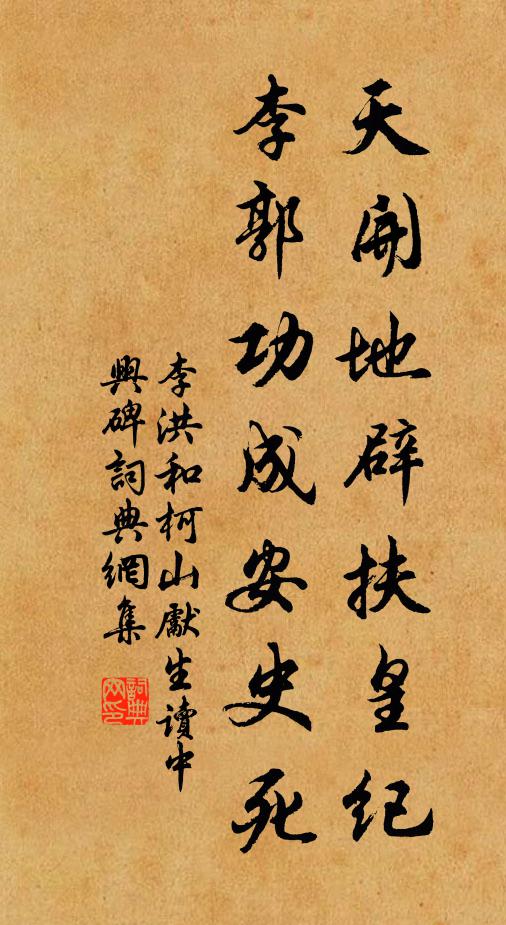 天開地辟扶皇纪
李郭功成安史死
李洪和柯山獻生讀中
興碑詞典網集
詞典網印